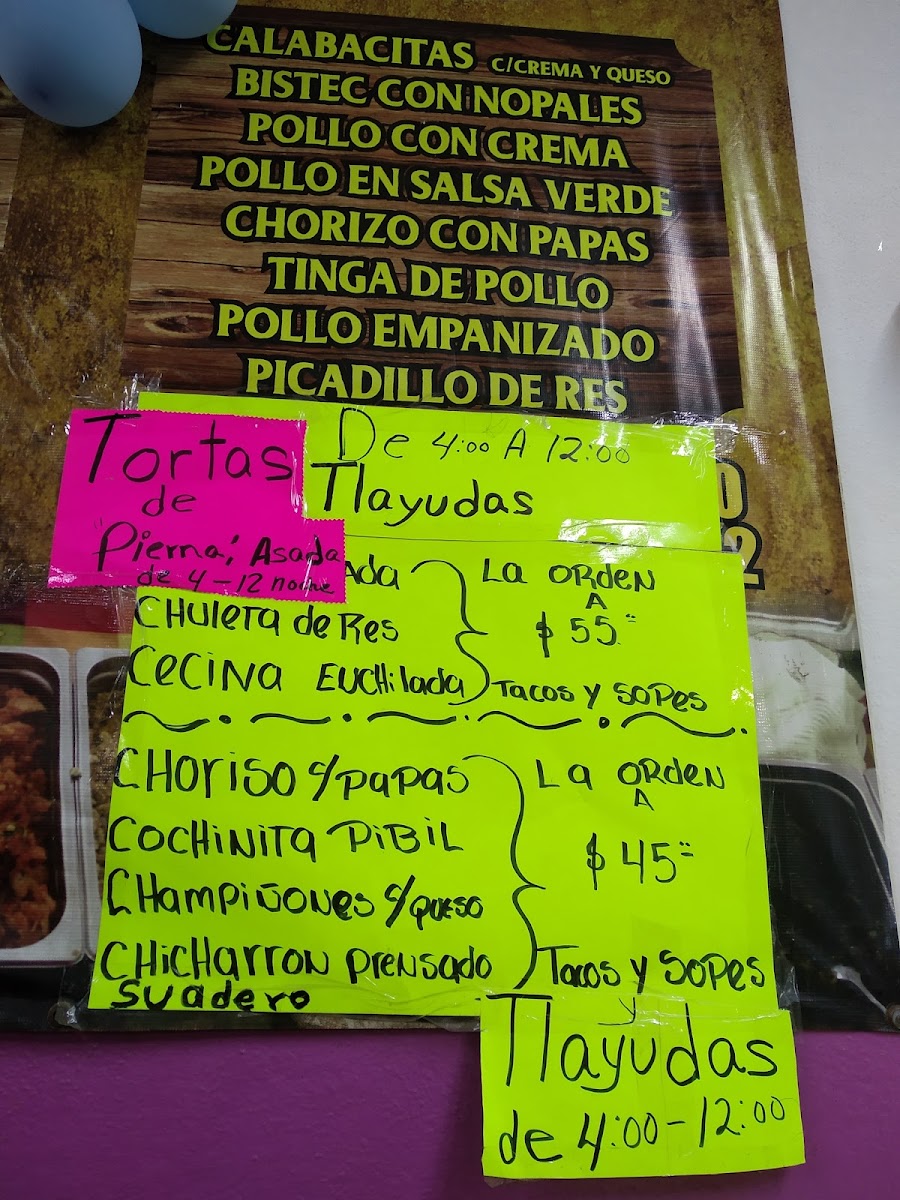 CALABACITAS C/CREMA Y QUESO
BISTEC CON NOPALES
POLLO CON CREMA
POLLO EN SALSA VERDE
CHORIZO CON PAPAS
TINGA DE POLLO
POLLO EMPANIZADO
PICADILLO DE RES
Tortas
de
"Pierna", Asada
de 4-12 noche
De 4:00 A 12:00
Tlayudas
ADA
CHULETA de Res
CECINA ENCHilada
La ORDEN
A
$ 55
TACOS y SOPES
CHORISO c/PAPAS
COCHINITA PIBIL
CHAMPIÑONES c/QUESO
CHICHARRON PRENSADO
Suadero
La ORDEN
A
$ 45
Tacos y SOPES
y
Tlayudas
de 4:00-12:00
2